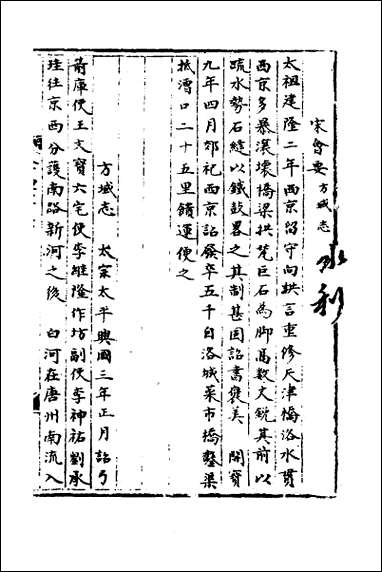 宋會要 方域志 水利
太祖建隆二年西京留守向拱言重修天津橋洛水貫
西京多暴漲壞橋梁拱甃巨石為脚高數丈銳其前以
疏水勢石縫以鐵鼓畧之其制甚固詔書褒美 開寶
九年四月郊祀西京詔發卒五千自洛城菜市橋鑿渠
抵漕口二十五里饋運便之
方域志 太宗太平興國三年正月詔弓
箭庫使王文寶六宅使李繼隆作坊副使李神祐劉承
珪往京西分護南路新河之役 白河在唐州南流入